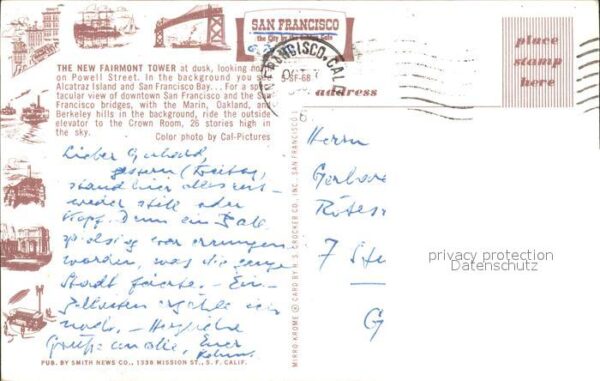 SAN FRANCISCO
the City by the Golden Gate
FRANCISCO, CAL
place
stamp
here
THE NEW FAIRMONT TOWER at dusk, looking no
on Powell Street. In the background you se
Alcatraz Island and San Francisco Bay... For a spe
tacular view of downtown San Francisco and the Sa
Francisco bridges, with the Marin, Oakland, and
Berkeley hills in the background, ride the outside
elevator to the Crown Room, 26 stories high in
the sky.
Color photo by Cal-Pictures
address
Lieber Gerhard,
gestern (Freitag)
stand hier alles ent-
weder still oder
Kopf. Denn ein Sieg
war errungen
worden, was die ganze
Stadt feierte. - Ein-
zelheiten erzähle ich
noch. - Herzliche
Grüße an alle, Euer
Herrn
Gerhar
7 Stu
G
MIRRO-KROME ® CARD BY H. S. CROCKER CO., INC. SAN FRANCISCO
PUB. BY SMITH NEWS CO., 1336 MISSION ST., S. F. CALIF.
privacy protection
Datenschutz